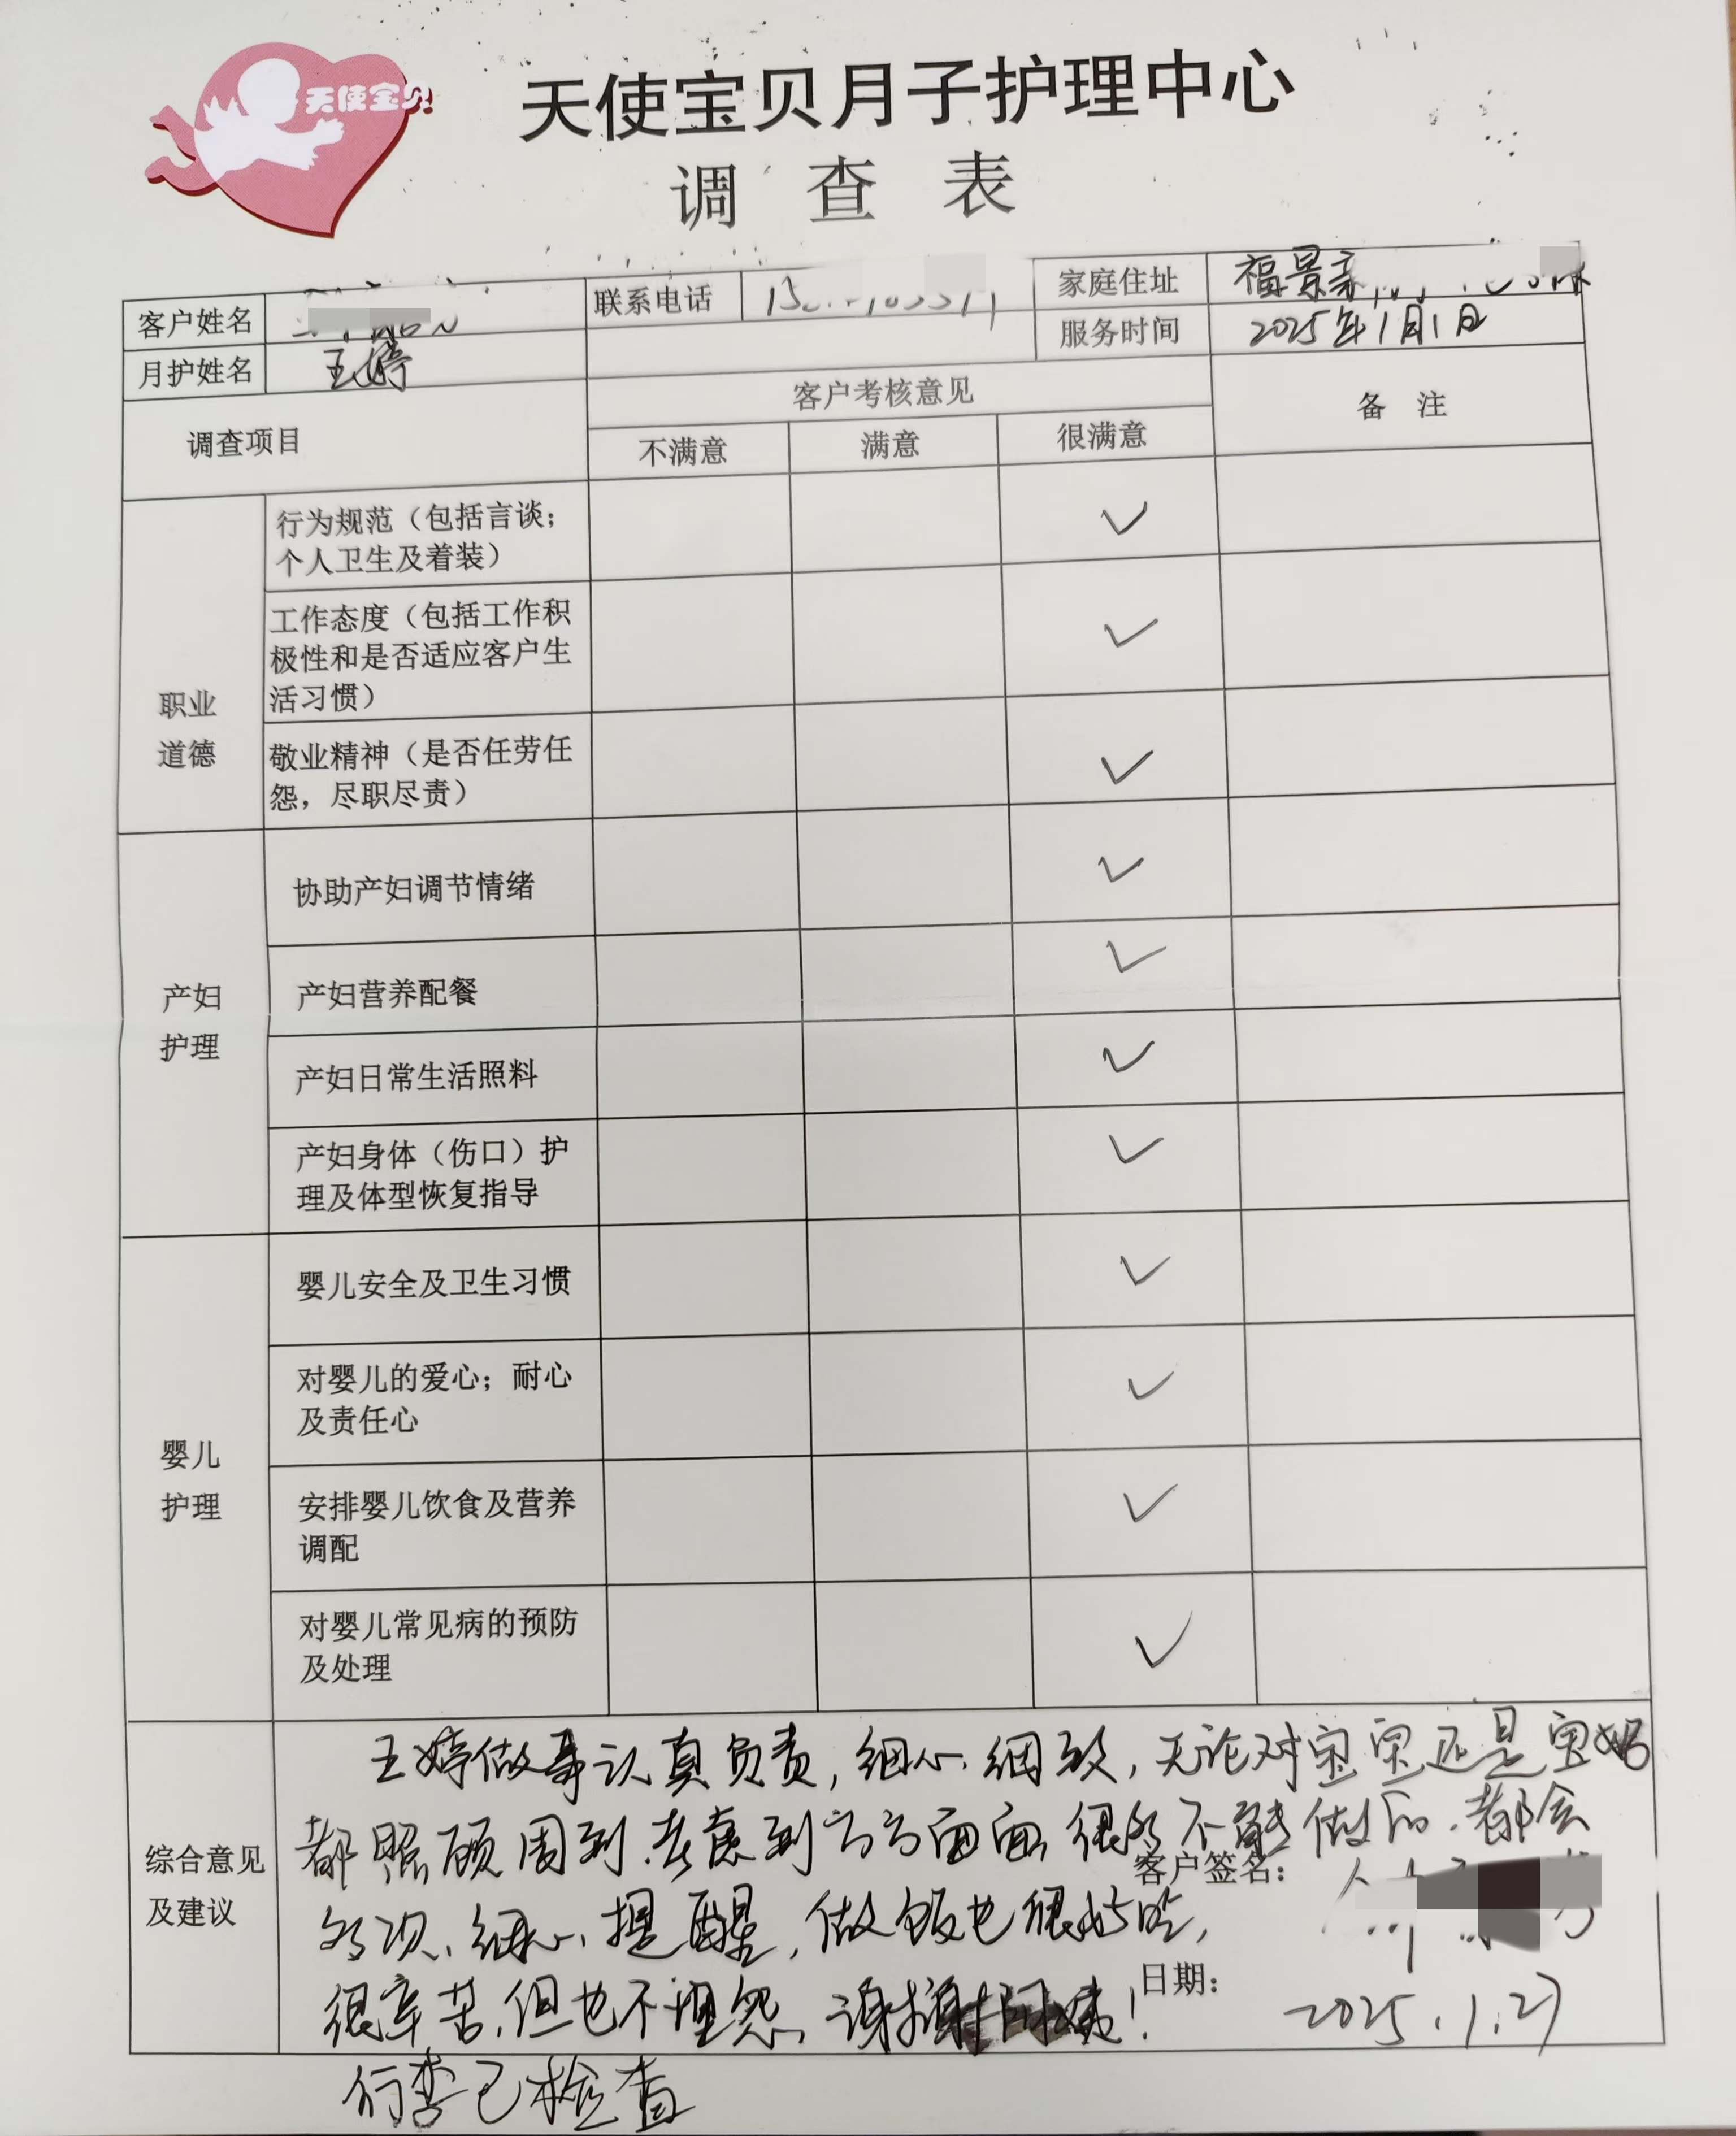 天使宝贝
天使宝贝月子护理中心
调 查 表
客户姓名 联系电话 家庭住址 福景
月护姓名 王婷 服务时间 2025年1月1日
调查项目 客户考核意见 备 注
不满意 满意 很满意
职业
道德
行为规范（包括言谈；
个人卫生及着装） ✓
工作态度（包括工作积
极性和是否适应客户生
活习惯） ✓
敬业精神（是否任劳任
怨，尽职尽责） ✓
产妇
护理
协助产妇调节情绪 ✓
产妇营养配餐 ✓
产妇日常生活照料 ✓
产妇身体（伤口）护
理及体型恢复指导 ✓
婴儿
护理
婴儿安全及卫生习惯 ✓
对婴儿的爱心；耐心
及责任心 ✓
安排婴儿饮食及营养
调配 ✓
对婴儿常见病的预防
及处理 ✓
综合意见
及建议
王婷做事认真负责，细心细致，无论对宝宝还是宝妈
都照顾周到.考虑到方方面面 很多不能做的.都会
多次、细心提醒，做饭也很好吃，
客户签名：
很辛苦，但也不埋怨，谢谢阿姨！
日期： 2025.1.27
行李已检查